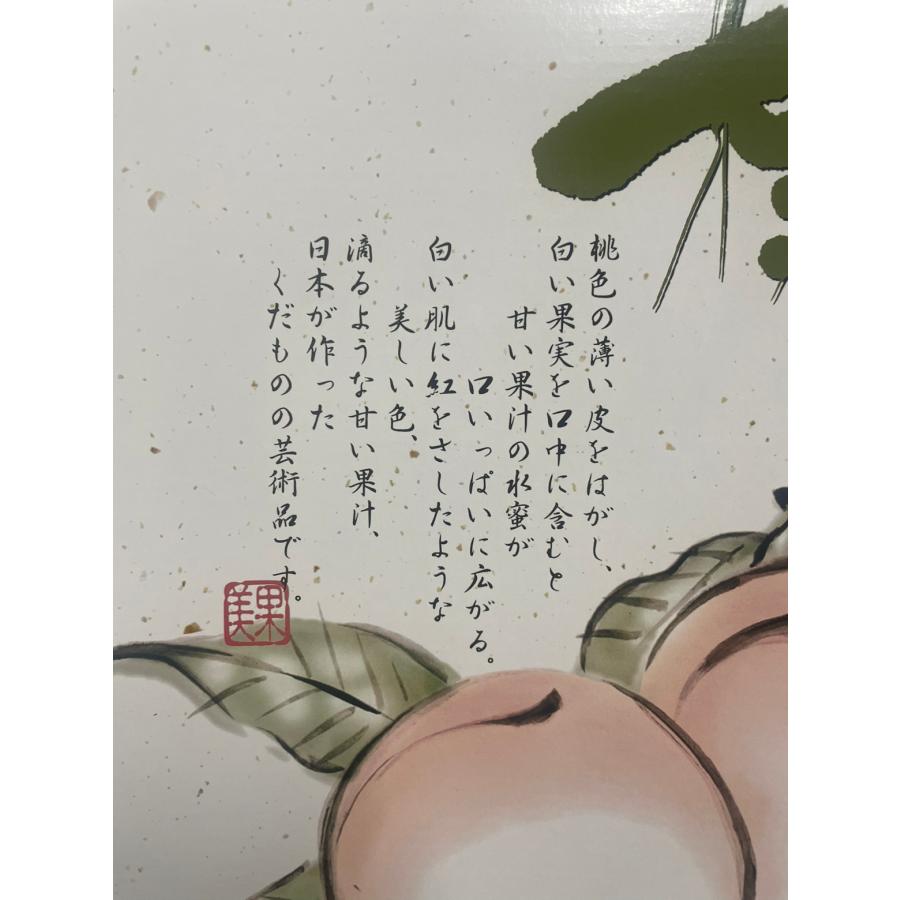 桃色の薄い皮をはがし、
白い果実を口中に含むと
甘い果汁の水蜜が
口いっぱいに広がる。
白い肌に紅をさしたような
美しい色、
滴るような甘い果汁、
日本が作った
くだものの芸術品です。
美果